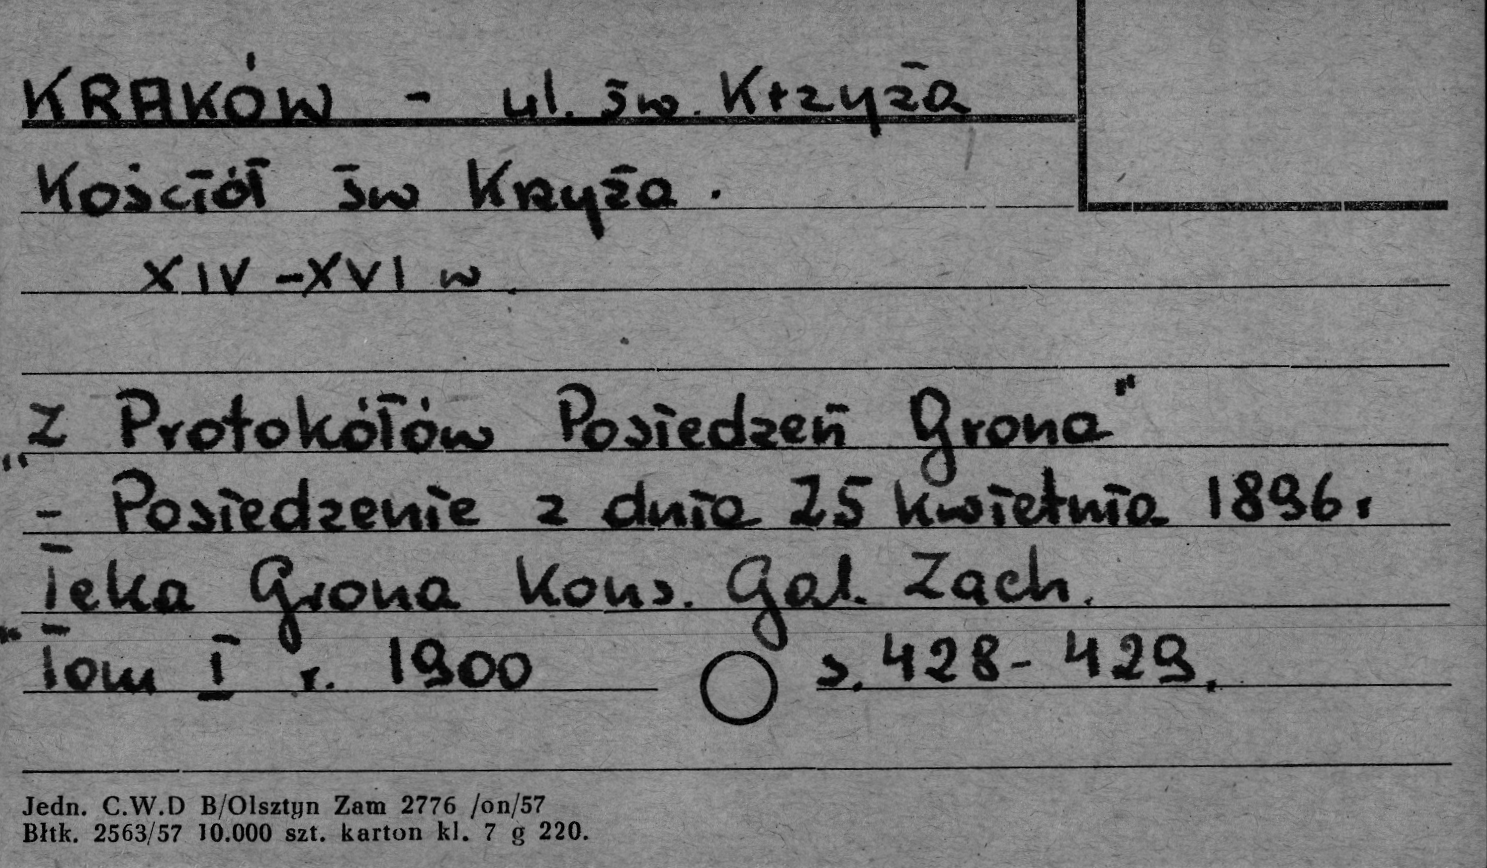 KRAKÓW - ul. św. Krzyża
Kościół św Krzyża.
XIV-XVI w.
"Z Protokółów Posiedzeń Grona"
- Posiedzenie z dnia 25 kwietnia 1896r
Teka Grona Kons. Gal. Zach.
"Tom I r. 1900 s. 428-429.
Jedn. C.W.D B/Olsztyn Zam 2776 /on/57
Błtk. 2563/57 10.000 szt. karton kl. 7 g 220.